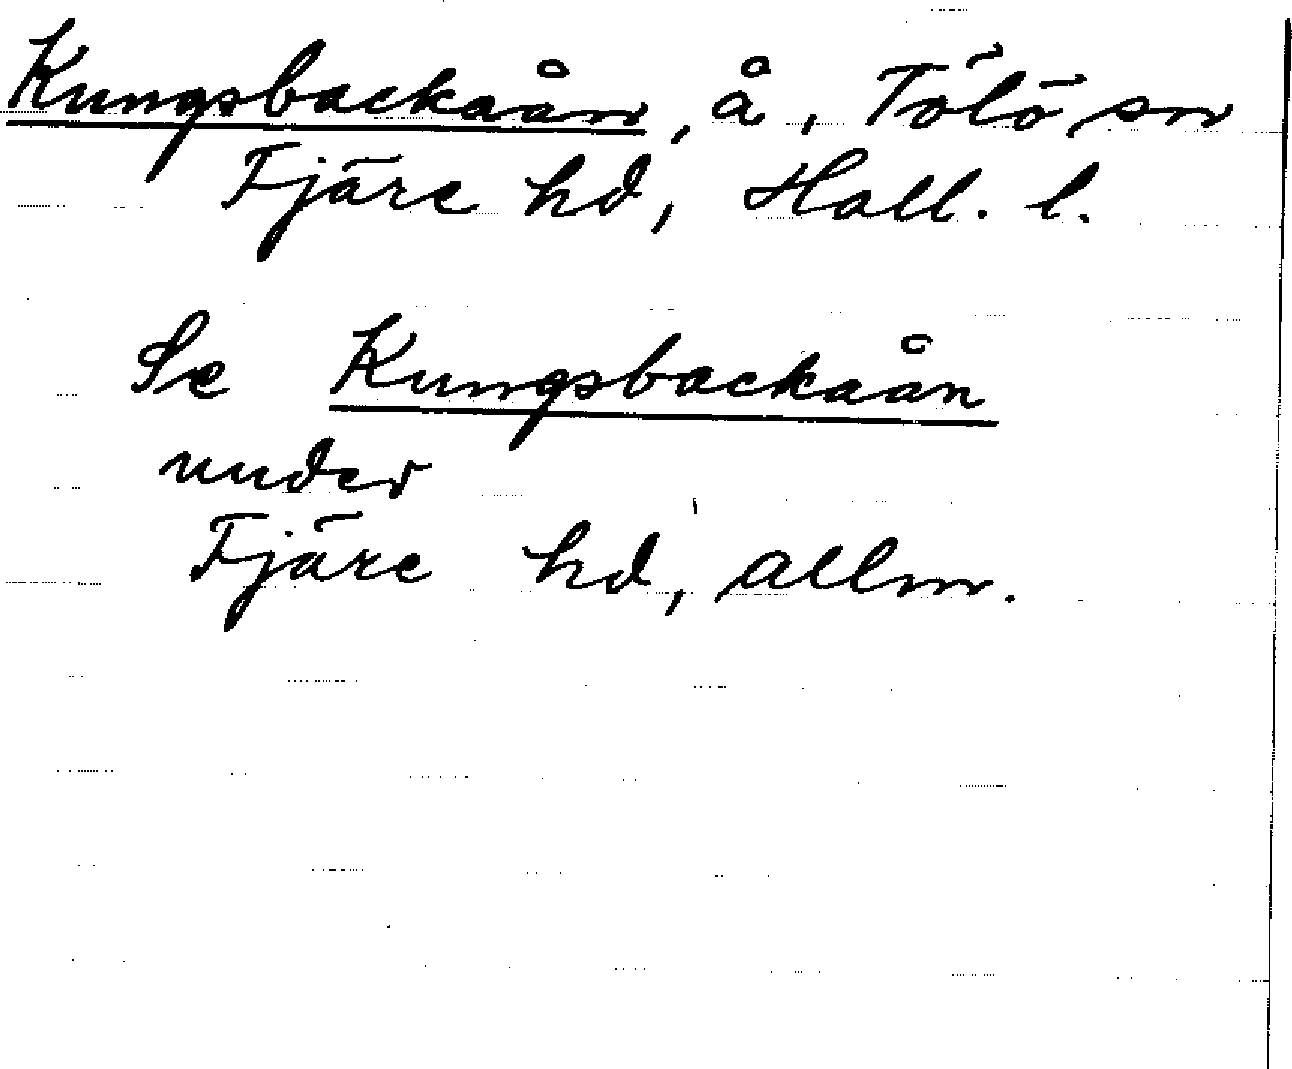 Kungsbackaån, å, Tölö sn
Fjäre hd, Hall. l.
Se Kungsbackaån
under
Fjäre hd, allm.